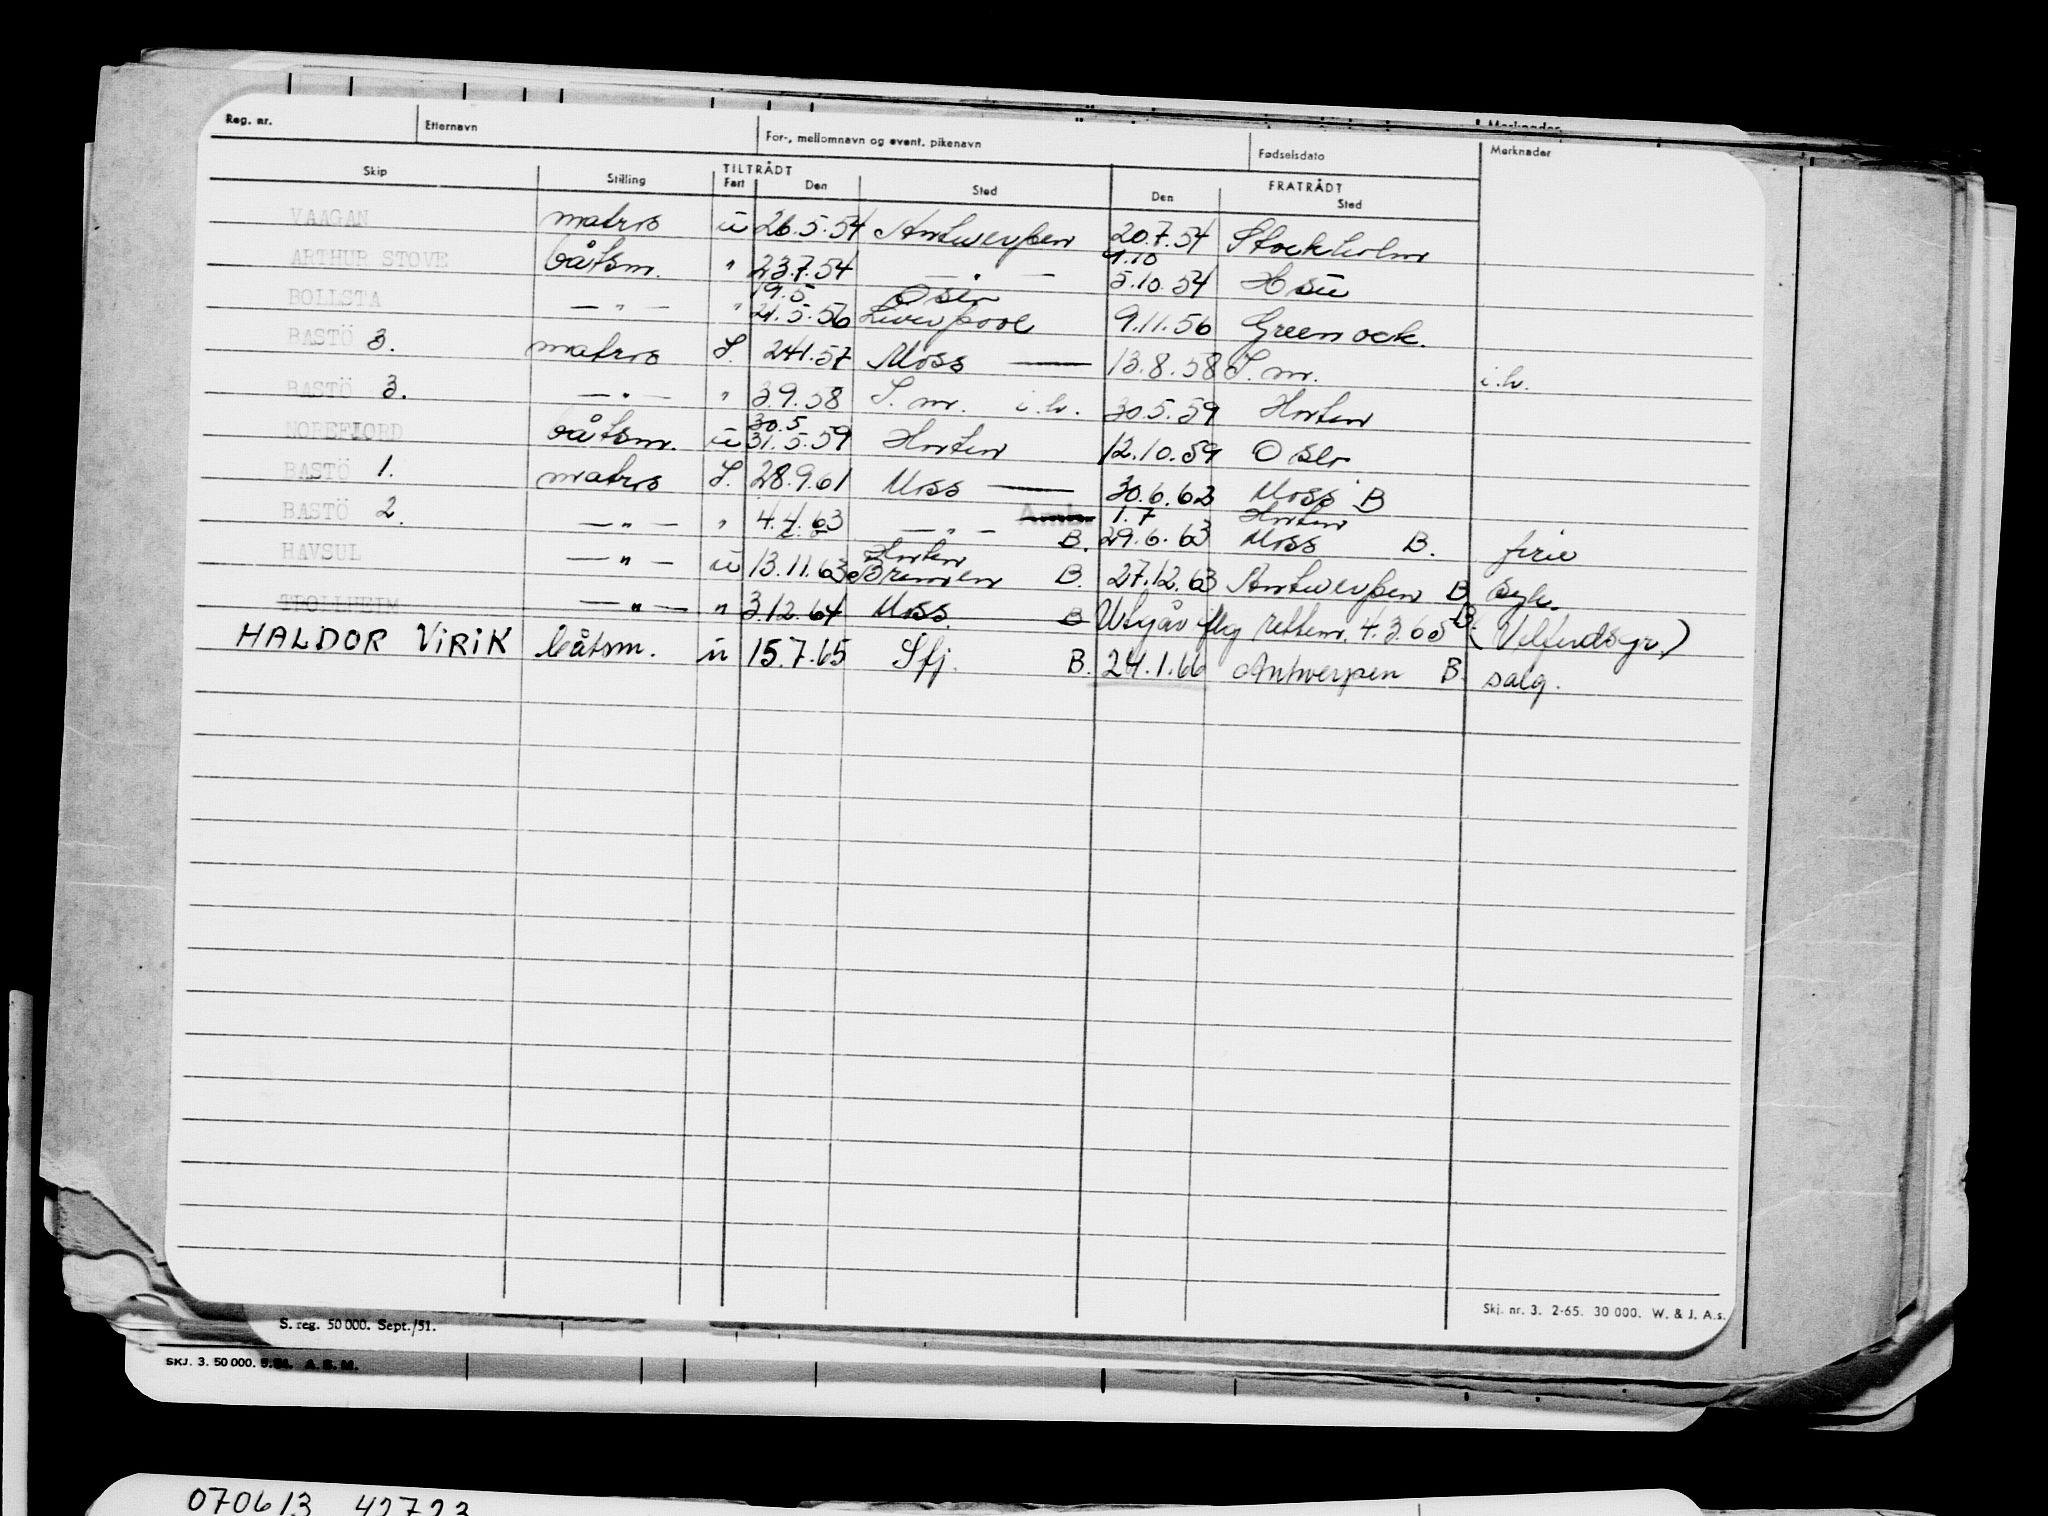 Merknader
Reg. nr. Etternavn For-, mellomnavn og event. pikenavn Fødselsdato Merknader
TILTRÅDT FRATRÅDT
Skip Stilling Fart Den Sted Den Sted
VAAGAN matros u 26.5.54 Antwerpen 20.7.54 Stockholm
9.10
ARTHUR STOVE båtsm. " 23.7.54 — " — 5.10.54 Hsu
19.5 Oslo
BOLLSTA — " — " 21.5.56 Liverpool 9.11.56 Greenock.
BASTÖ 3. matros I. 24.1.57 Moss — 13.8.58 S.m. i.h.
BASTÖ 3. — " — " 3.9.58 S.m. i.h. 30.5.59 Horten
30.5
NOREFJORD båtsm. u 31.5.59 Horten 12.10.59 Oslo
BASTÖ 1. matros I. 28.9.61 Moss — 30.6.62 Moss B
1.7 Horten
BASTÖ 2. — " — " 4.4.63 — " — B. 29.6.63 Moss B. ferie
Horten
HAVSUL — " — u 13.11.63 Bremen B. 27.12.63 Antwerpen B syk.
TROLLHEIM — " — " 3.12.64 Moss B Utgår flg rettem. 4.3.65 B. (Velferdsgr.)
HALDOR VIRIK båtsm. u 15.7.65 Sfj. B. 24.1.66 Antwerpen B. salg.
Skj. nr. 3. 2-65. 30 000. W. & J. A.s.
S. reg. 50 000. Sept./51.
SKJ. 3. 50 000. A. S. M.
070613 42723